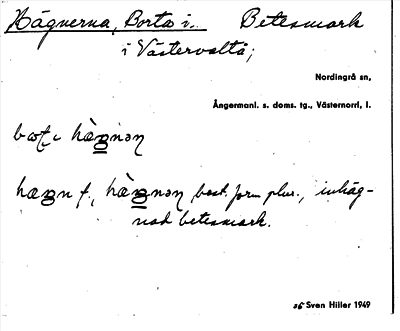 Hägnerna, Borta i.. Betesmark
i Västervalta;
Nordingrå sn,
Ångermanl. s. doms. tg., Västernorrl, l.
hægn f., best. form plur., inhäg-
nad betesmark.
Sven Hiller 1949